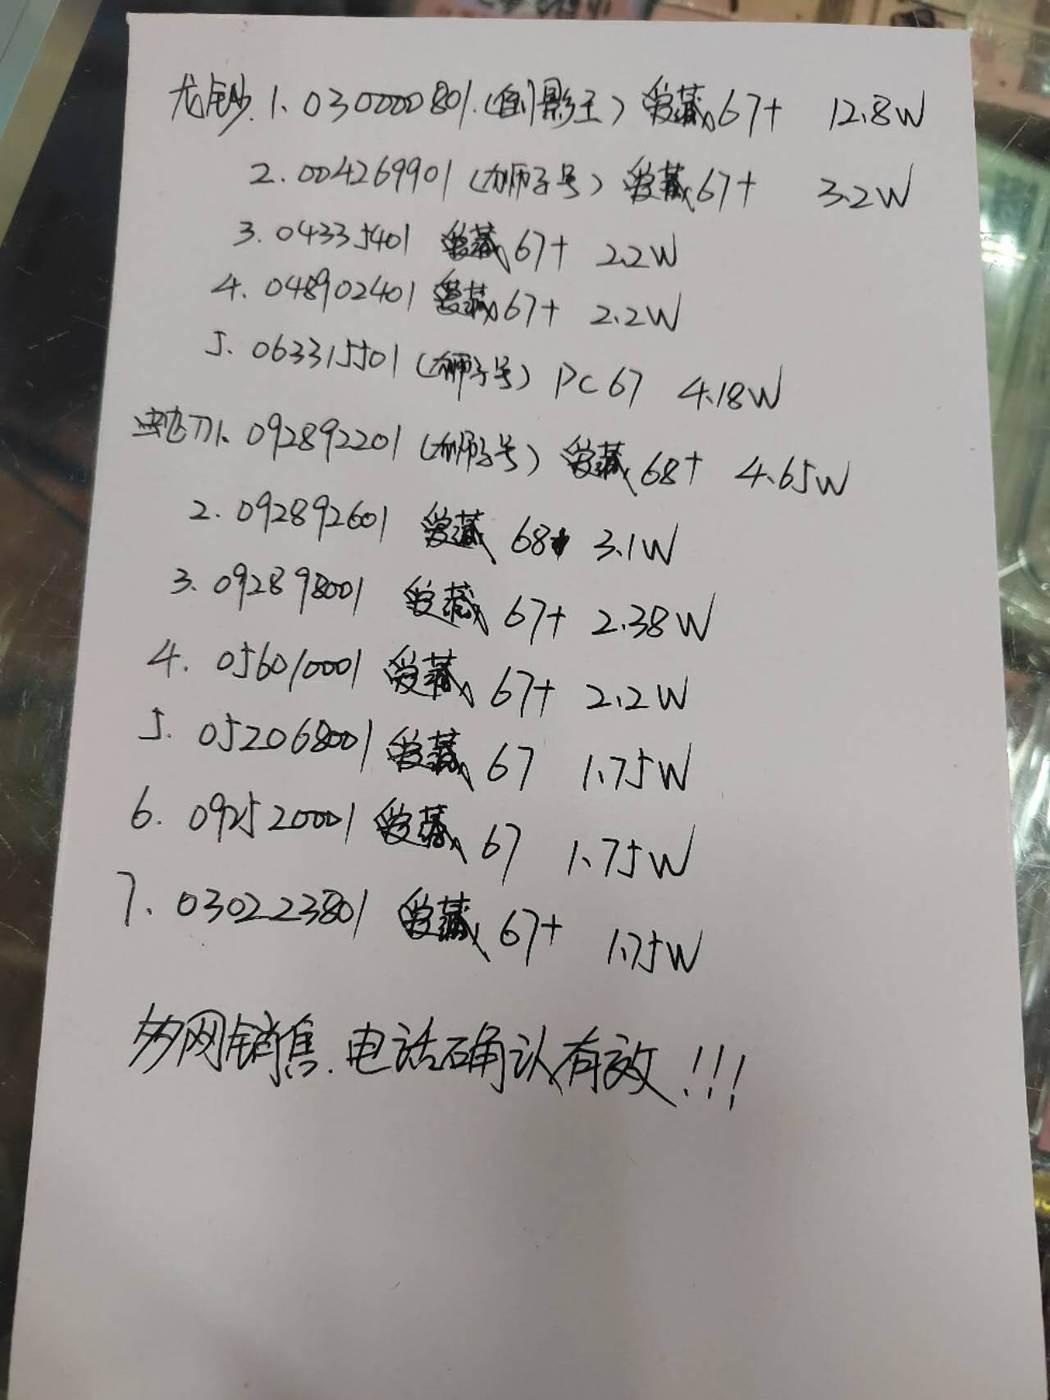 龙钞.1、030000801.(倒影王)爱藏67+ 12.8W
2.004269901(狮子号)爱藏67+ 3.2W
3.04335401 爱藏67+ 2.2W
4.048902401 爱藏67+ 2.2W
5.063315501(狮子号)PC67 4.18W
蛇刀1.092892201(狮子号)爱藏68+ 4.65W
2.092892601 爱藏 68 3.1W
3.092898001 爱藏 67+ 2.38W
4.056010001 爱藏 67+ 2.2W
5.052068001 爱藏 67 1.75W
6.092520001 爱藏 67 1.75W
7.030223801 爱藏 67+ 1.75W
多网销售.电话确认有效!!!